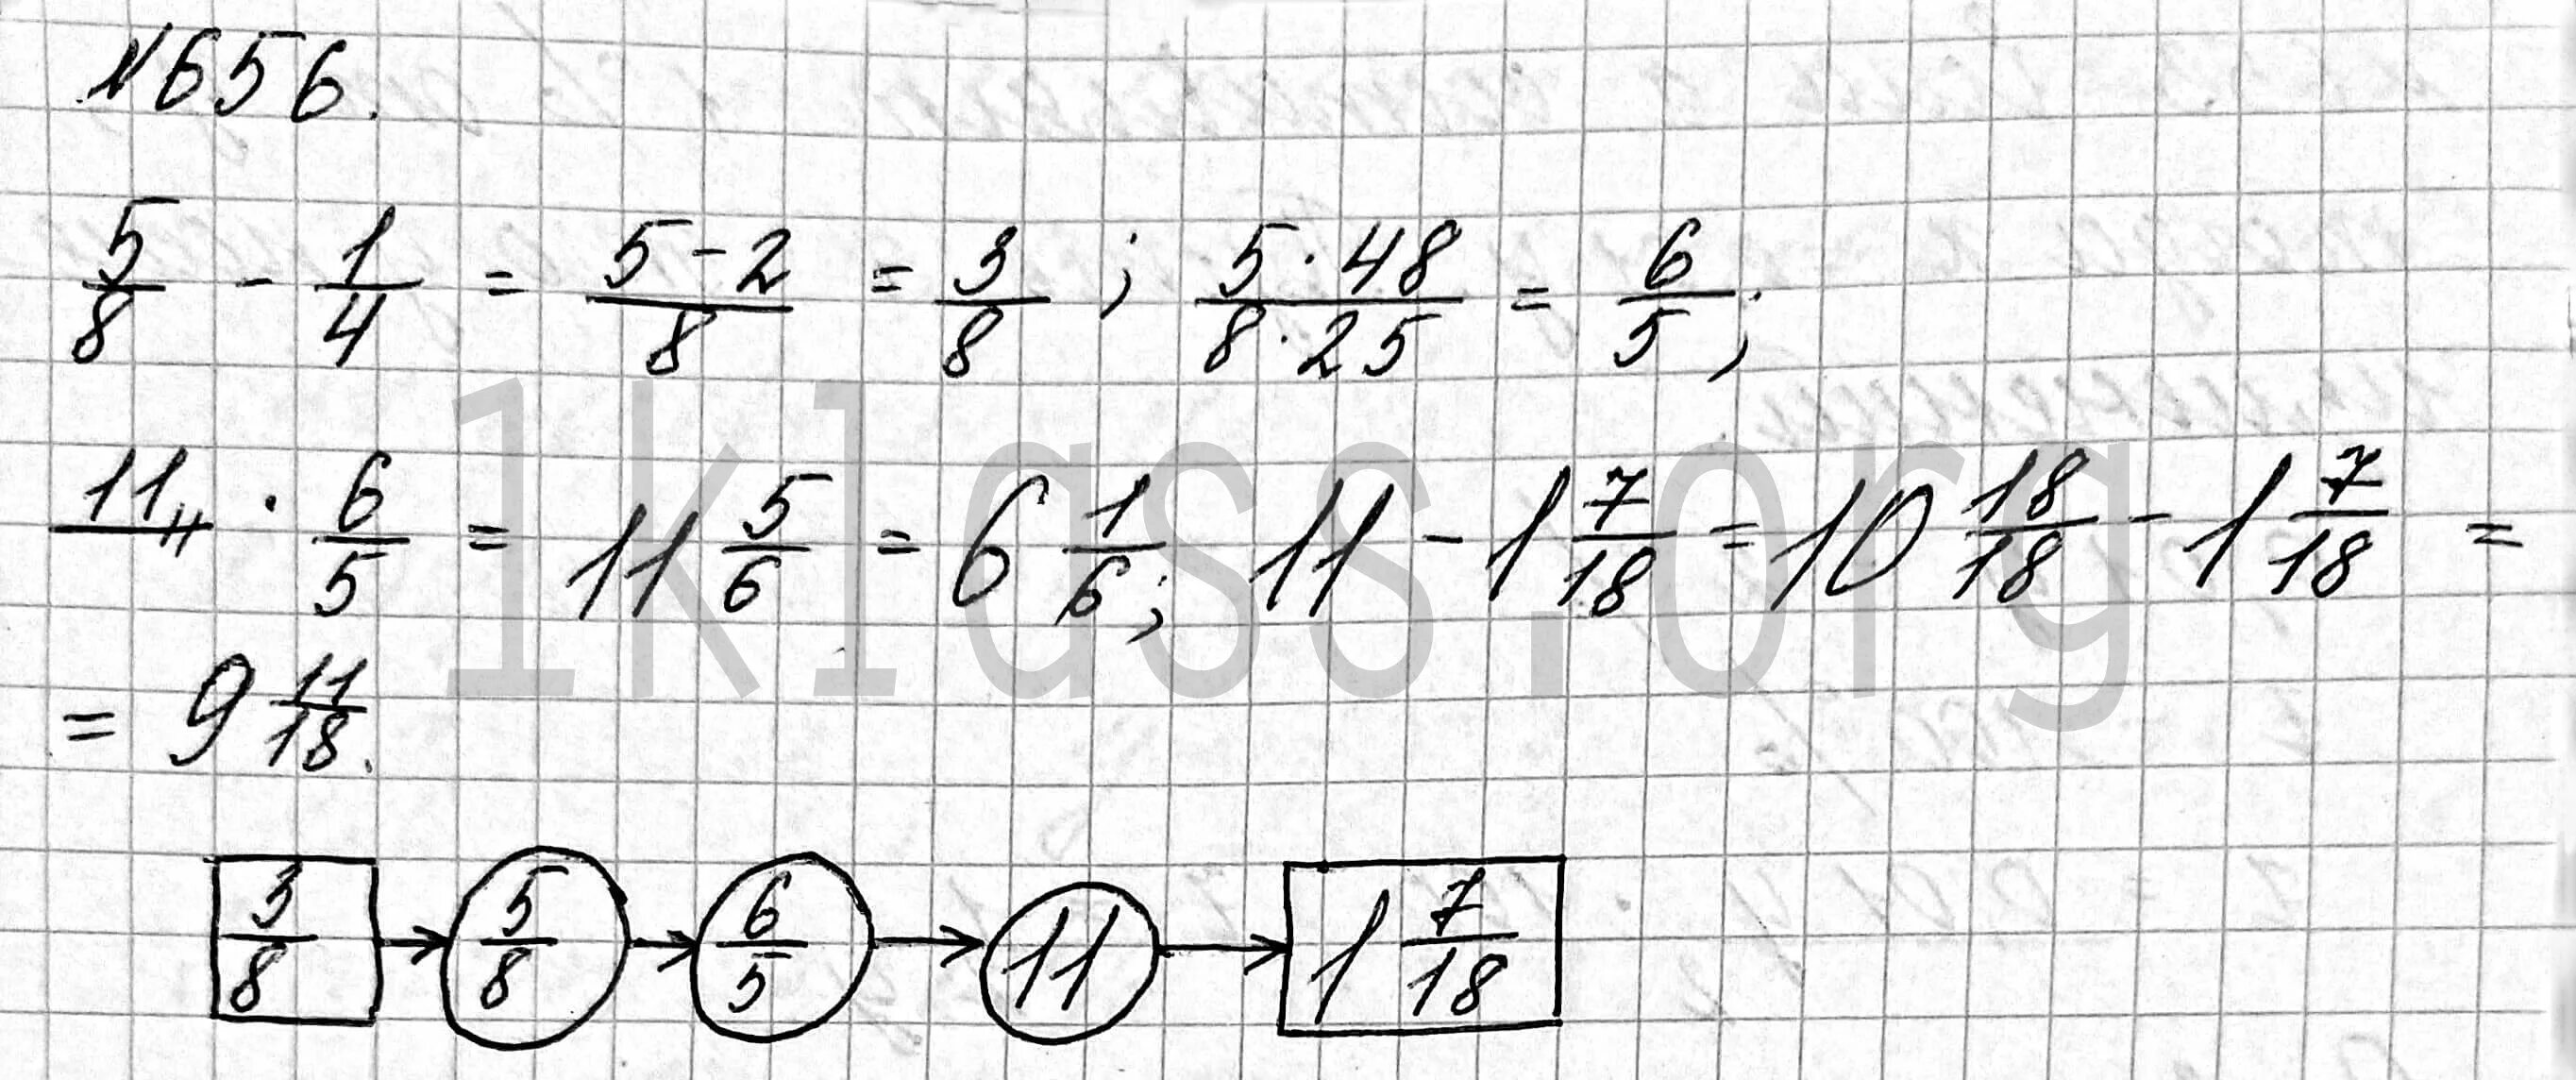 №656.
5/8 - 1/4 = (5-2)/8 = 3/8 ; (5·48)/(8·25) = 6/5 ;
11 · 6/5 = 11 5/6 = 6 1/6 ; 11 - 1 7/18 = 10 18/18 - 1 7/18 =
= 9 11/18.
3/8 → 5/8 → 6/5 → 11 → 1 7/18
1klass.org